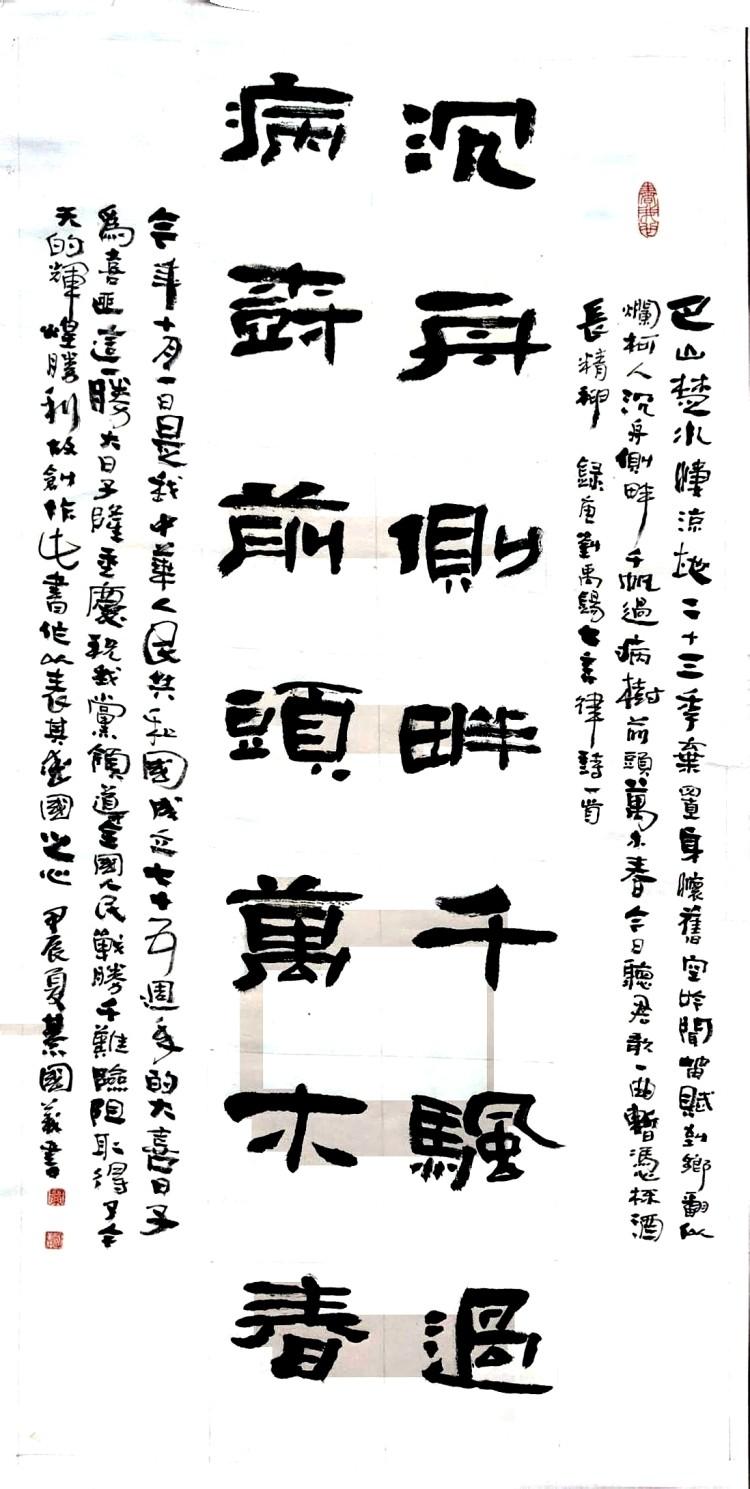 巴山楚水悽涼地二十三年棄置身懷舊空吟聞笛賦到鄉翻似
爛柯人沉舟側畔千帆過病樹前頭萬木春今日聽君歌一曲暫憑杯酒
長精神 録唐劉禹錫七言律詩一首
沉舟側畔千颿過
病尌前頭萬木春
今年十月一日是我中華人民共和國成立七十五週年的大喜日子
爲喜迎這一勝大日子隆重慶祝我黨領導全國人民戰勝千難險阻取得了今
天的輝煌勝利故創作此書作以表其愛國之心 甲辰夏綦國義書